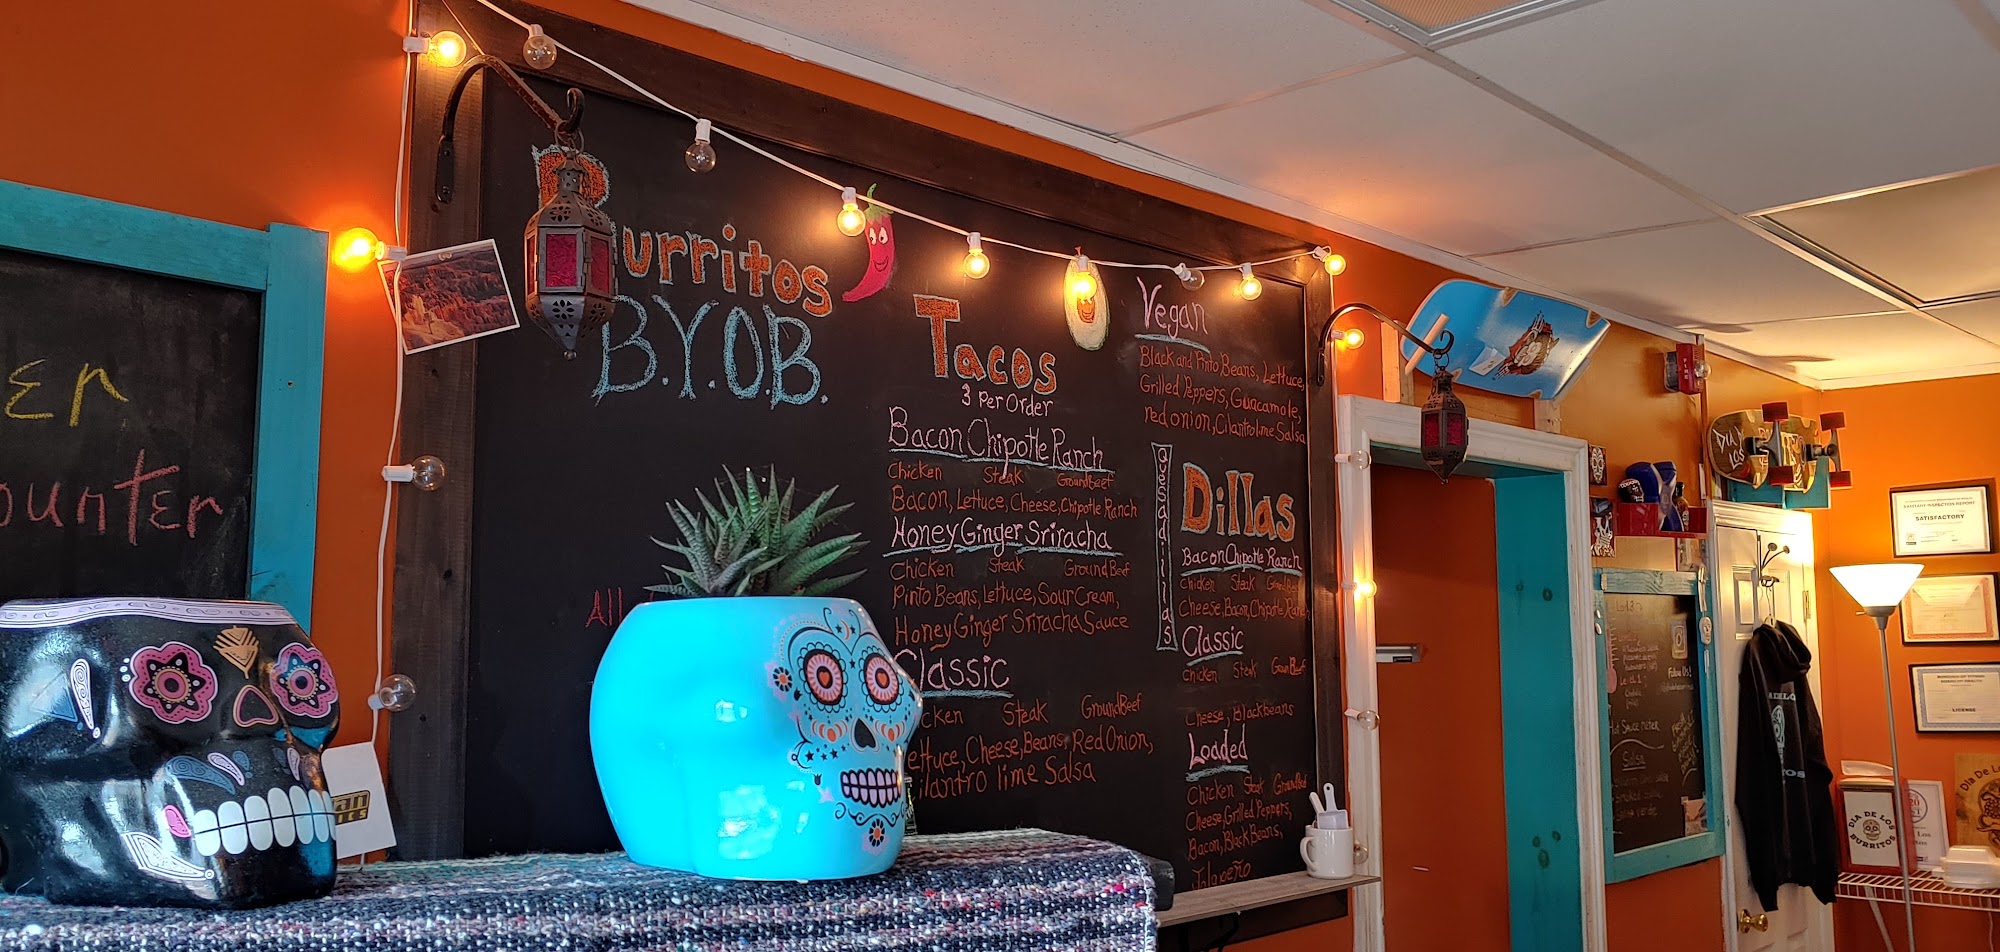 er
ounter
Burritos
B.Y.O.B.
All
Tacos
3 Per Order
Bacon Chipotle Ranch
Chicken Steak Ground Beef
Bacon, Lettuce, Cheese, Chipotle Ranch
Honey Ginger Sriracha
Chicken Steak Ground Beef
Pinto Beans, Lettuce, Sour Cream,
Honey Ginger Sriracha Sauce
Classic
icken Steak Ground Beef
ettuce, Cheese, Beans, Red Onion,
ilantro lime Salsa
Vegan
Black and Pinto Beans, Lettuce,
Grilled Peppers, Guacamole,
red onion, Cilantro lime Salsa
Quesadillas
Dillas
Bacon Chipotle Ranch
Chicken Steak Ground Beef
Cheese, Bacon, Chipotle Ranch
Classic
Chicken Steak Ground Beef
Cheese, Black beans
Loaded
Chicken Steak Ground Beef
Cheese, Grilled Peppers,
Bacon, Black Beans,
Jalapeño
FIRE
DIA
LOS
SANITARY INSPECTION REPORT
SATISFACTORY
LICENSE
Follow Us!
Hot Sauce meter
Salsa
Salsa verde
DIA DE LOS
BURRITOS
DIA DE LOS